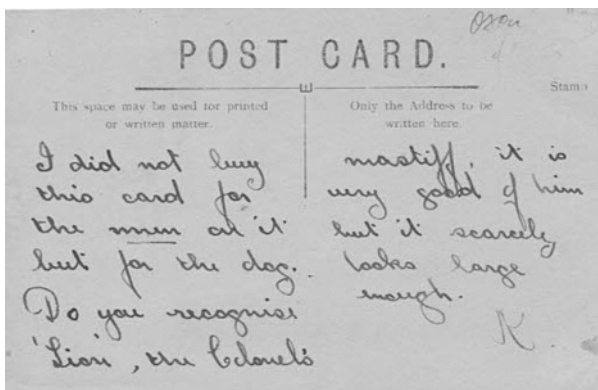 Oxon
POST CARD.
Stamp
This space may be used for printed
or written matter.
Only the Address to be
written here.
I did not buy
this card for
the men on it
but for the dog.
Do you recognise
'Lion', the Colonel's
mastiff, it is
very good of him
but it scarcely
looks large
enough.
K.